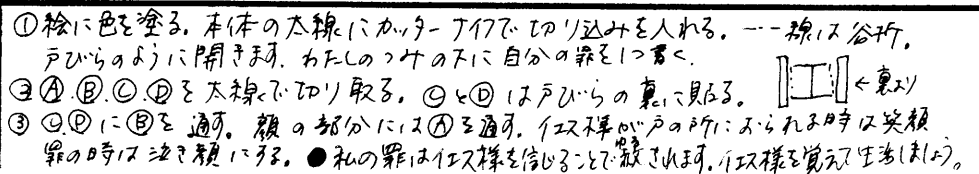 ①絵に色を塗る。本体の太線にカッターナイフで切り込みを入れる。---線は谷折。
戸びらのように開きます。わたしのつみの下に自分の罪を1つ書く。
②Ⓐ.Ⓑ.Ⓒ.Ⓓを太線で切り取る。ⒸとⒹは戸びらの裏に貼る。
←裏より
③Ⓒ.Ⓓにⓑを通す。顔の部分にはⒶを通す。イエス様が戸の所におられる時は笑顔
罪の時は泣き顔にする。●私の罪はイエス様を信じることで赦されます。イエス様を覚えて生活しましょう。